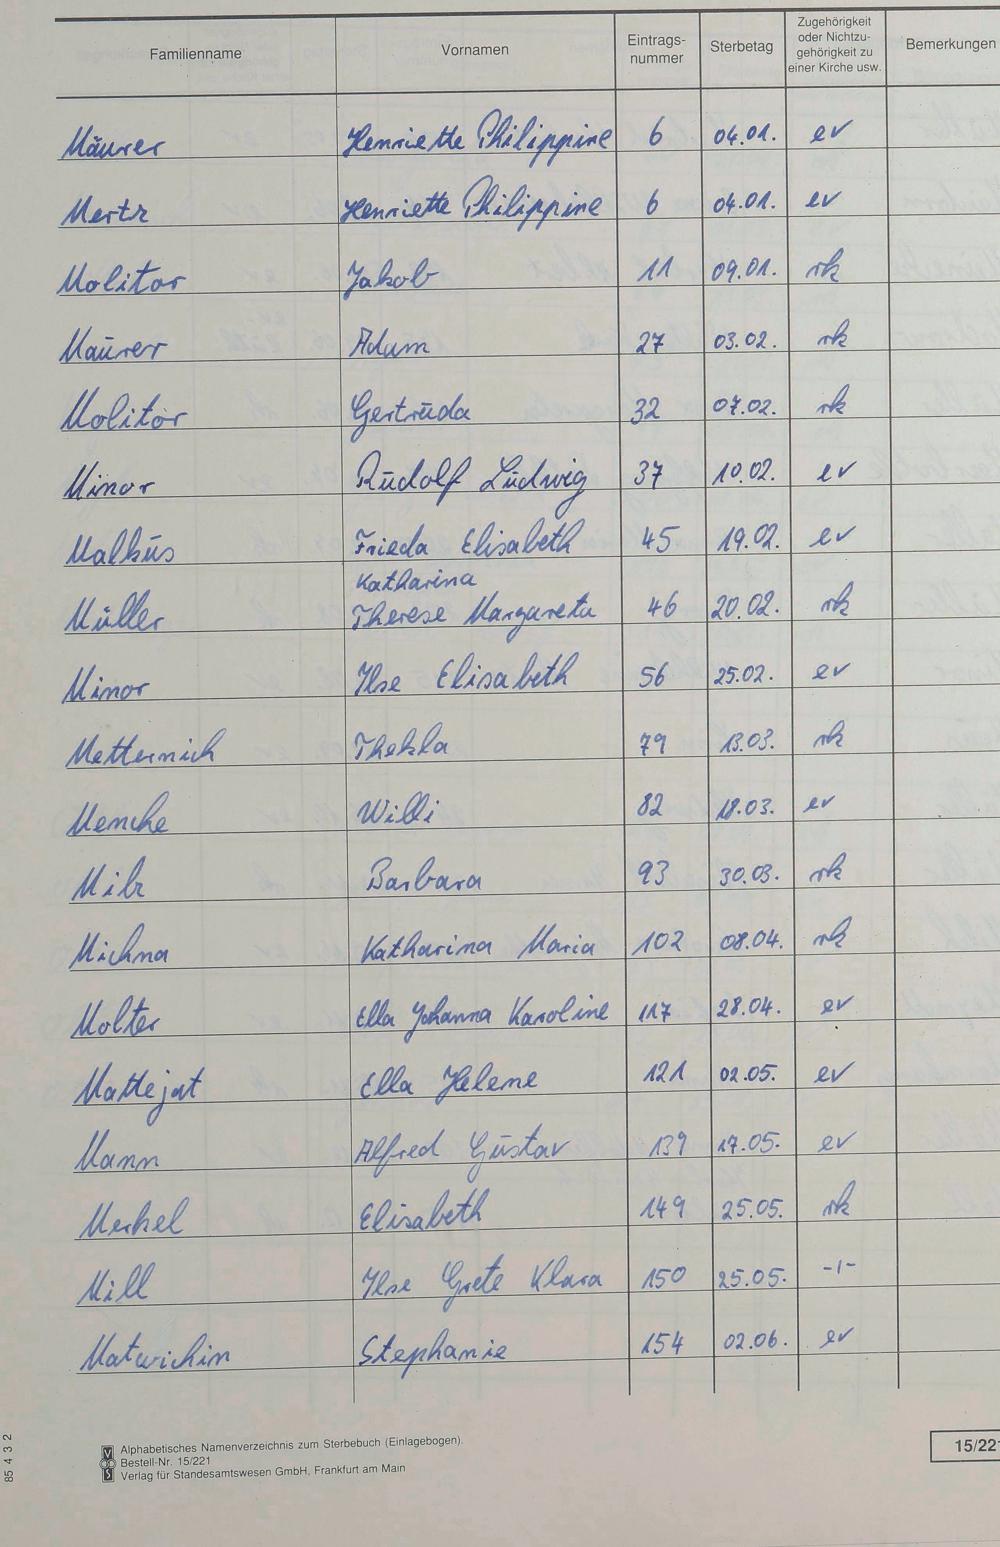 Familienname Vornamen Eintrags-nummer Sterbetag Zugehörigkeit oder Nichtzu-gehörigkeit zu einer Kirche usw. Bemerkungen
Mäurer Henriette Philippine 6 04.01. ev
Mertz Henriette Philippine 6 04.01. ev
Molitor Jakob 11 09.01. rk
Maurer Adam 27 03.02. rk
Molitor Gertruda 32 07.02. rk
Minor Rudolf Ludwig 37 10.02. ev
Malkus Frieda Elisabeth 45 19.02. ev
Katharina
Müller Therese Margareta 46 20.02. rk
Minor Ilse Elisabeth 56 25.02. ev
Metternich Thekla 79 13.03. rk
Mencke Willi 82 18.03. ev
Milz Barbara 93 30.03. rk
Michna Katharina Maria 102 08.04. rk
Molter Ella Johanna Karoline 117 28.04. ev
Mattejat Ella Helene 121 02.05. ev
Mann Alfred Gustav 139 17.05. ev
Merkel Elisabeth 149 25.05. rk
Mill Ilse Grete Klara 150 25.05. -1-
Matwichin Stephanie 154 02.06. ev
Alphabetisches Namenverzeichnis zum Sterbebuch (Einlagebogen).
Bestell-Nr. 15/221
Verlag für Standesamtswesen GmbH, Frankfurt am Main
15/221
85432